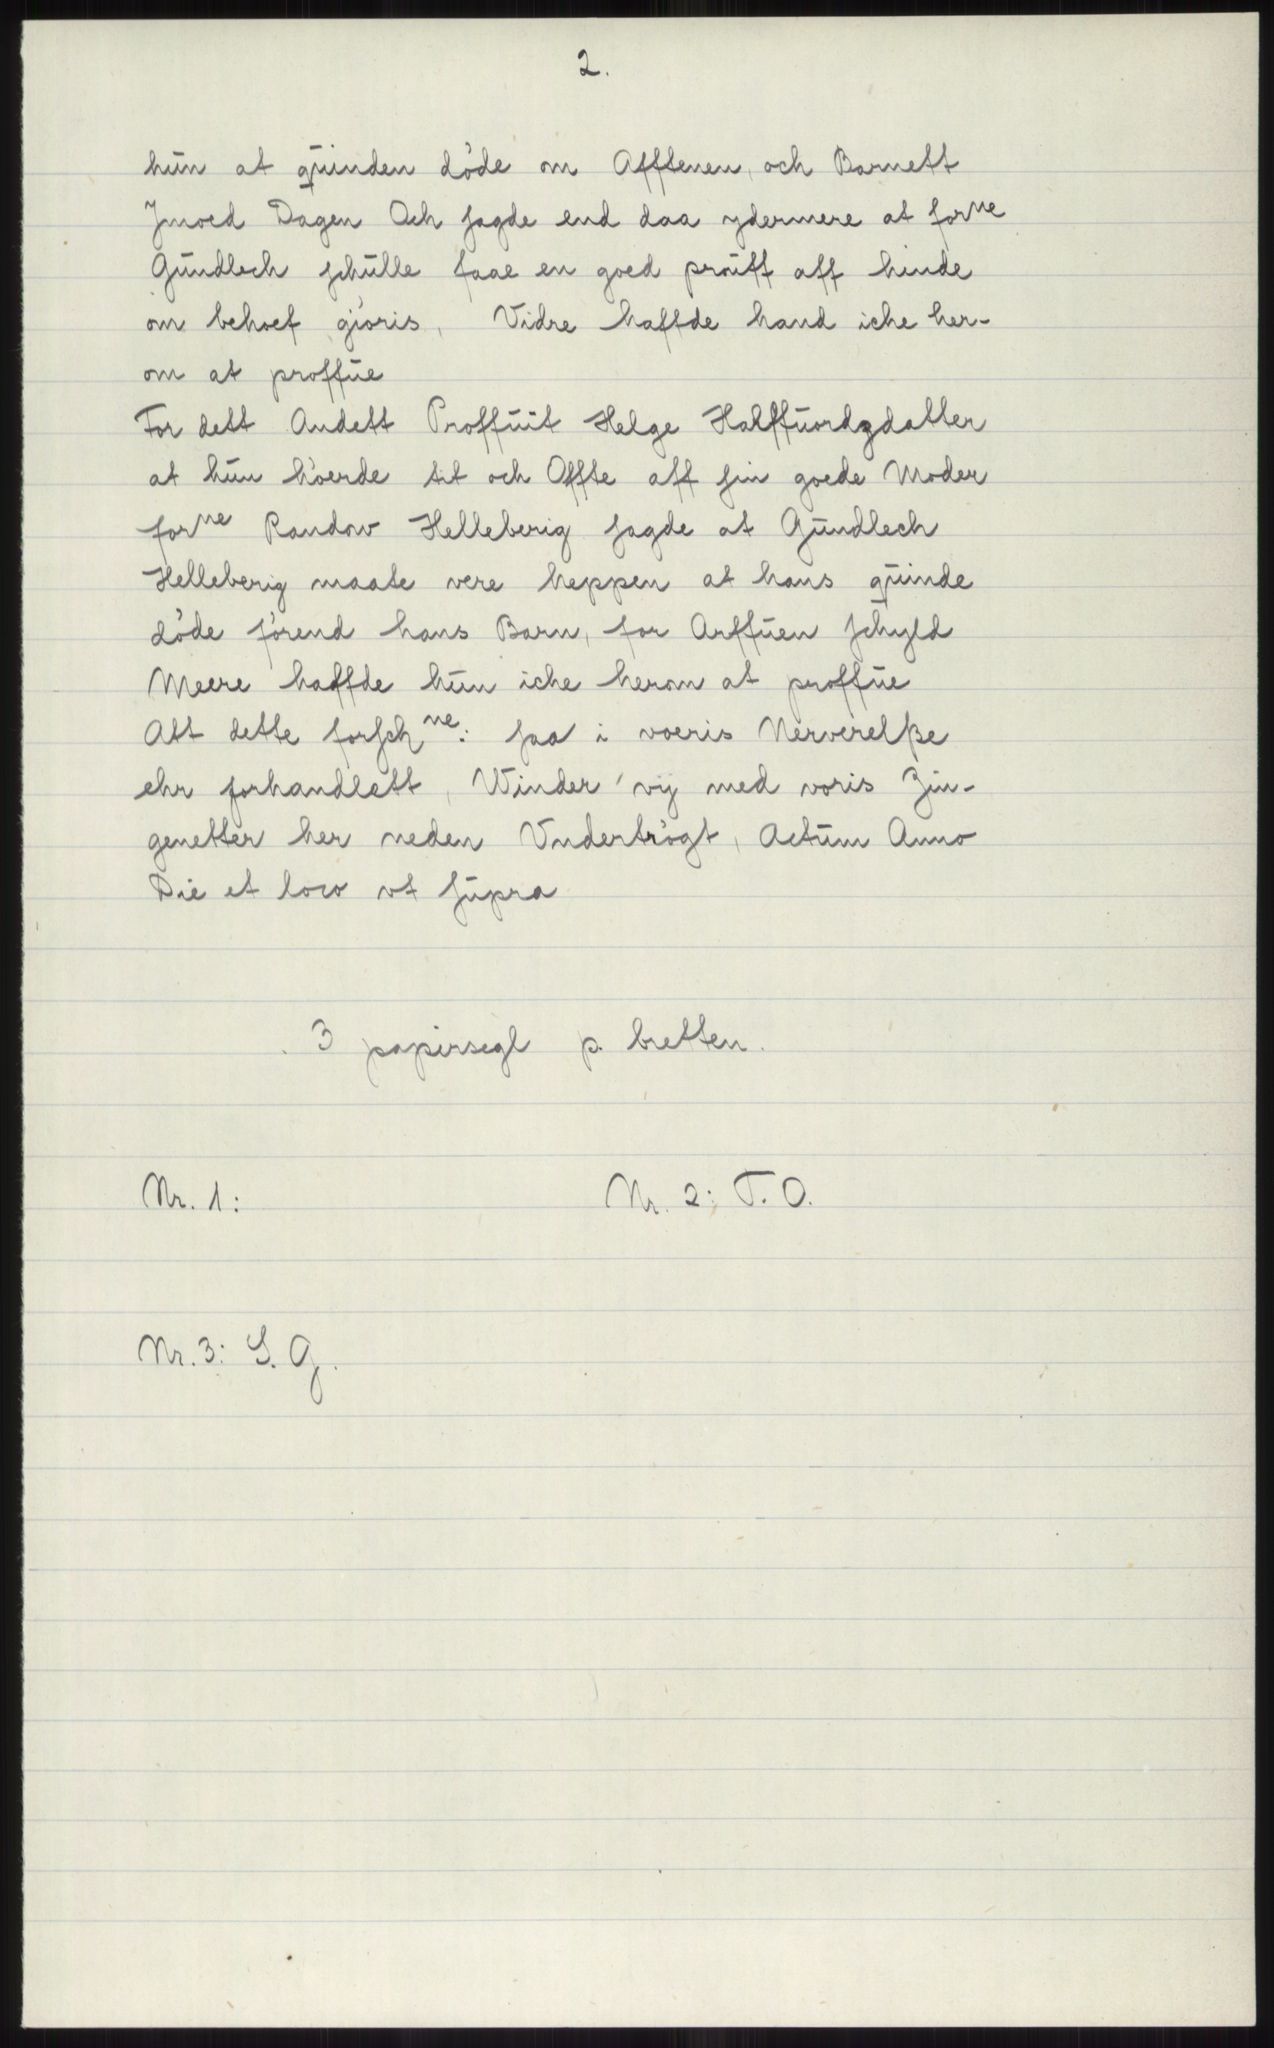 2.
hun at quinden døde om Afftenen, och Barnett
Jmoed Dagen Och sagde end daa ydermere at for^ne
Gundlech schulle faae en goed prouff aff hinde
om behoef giøris, Vidre haffde hand iche her-
om at proffue
For dett Andett Proffuit Helge Halffuordzdatter
at hun hoerde tit och Offte aff sin goede Moder
for^ne Randov Helleberig sagde at Gundlech
Helleberig maate vere heppen at hans quinde
døde førend hans Barn, for Arffuen schyld
Meere haffde hun iche herom at proffue
Att dette forsch^ne: saa i voeris Nerverelße
ehr forhandlett, Winder vij med voris Zin-
genetter her neden Vndertrøgt, Actum Anno
Die et loco vt supra
3 papirsegl p. bretten.
Nr. 1:
Nr. 2: T. O.
Nr. 3: S. G.